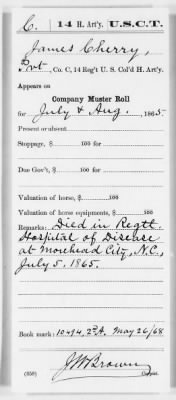 C. 14 H. Art'y. U.S.C.T.
James Cherry,
Pvt, Co. C, 14 Reg't U. S. Col'd H. Art'y.
Appears on
Company Muster Roll
for July & Aug., 1865
Present or absent
Stoppage, $ 100 for
Due Gov't, $ 100 for
Valuation of horse, $ 100
Valuation of horse equipments, $ 100
Remarks: Died in Regtl.
Hospital of Disease
at Morehead City, N.C.,
July 5, 1865.
Book mark: 10494, 2d A. May 26/68
J W Brown
(358) Copyist.